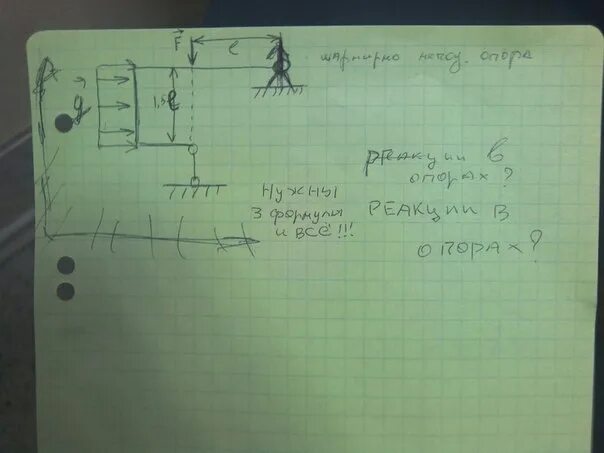 F
l
шарнирно непод. опора
q
1,5l
реакции в
опорах?
нужны
3 формулы
и всё!!!
РЕАКЦИИ В
ОПОРАХ?